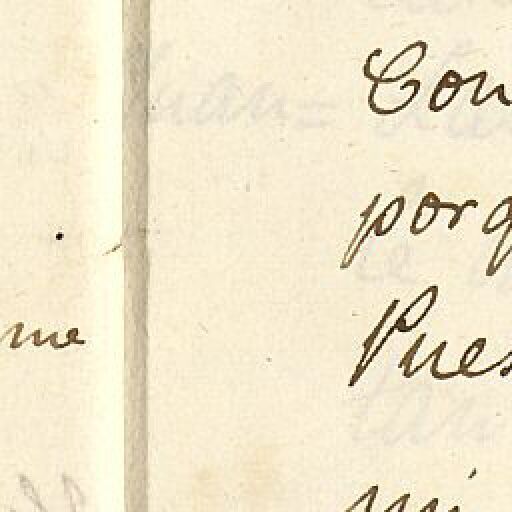 me
Con
porq
Pues
mi